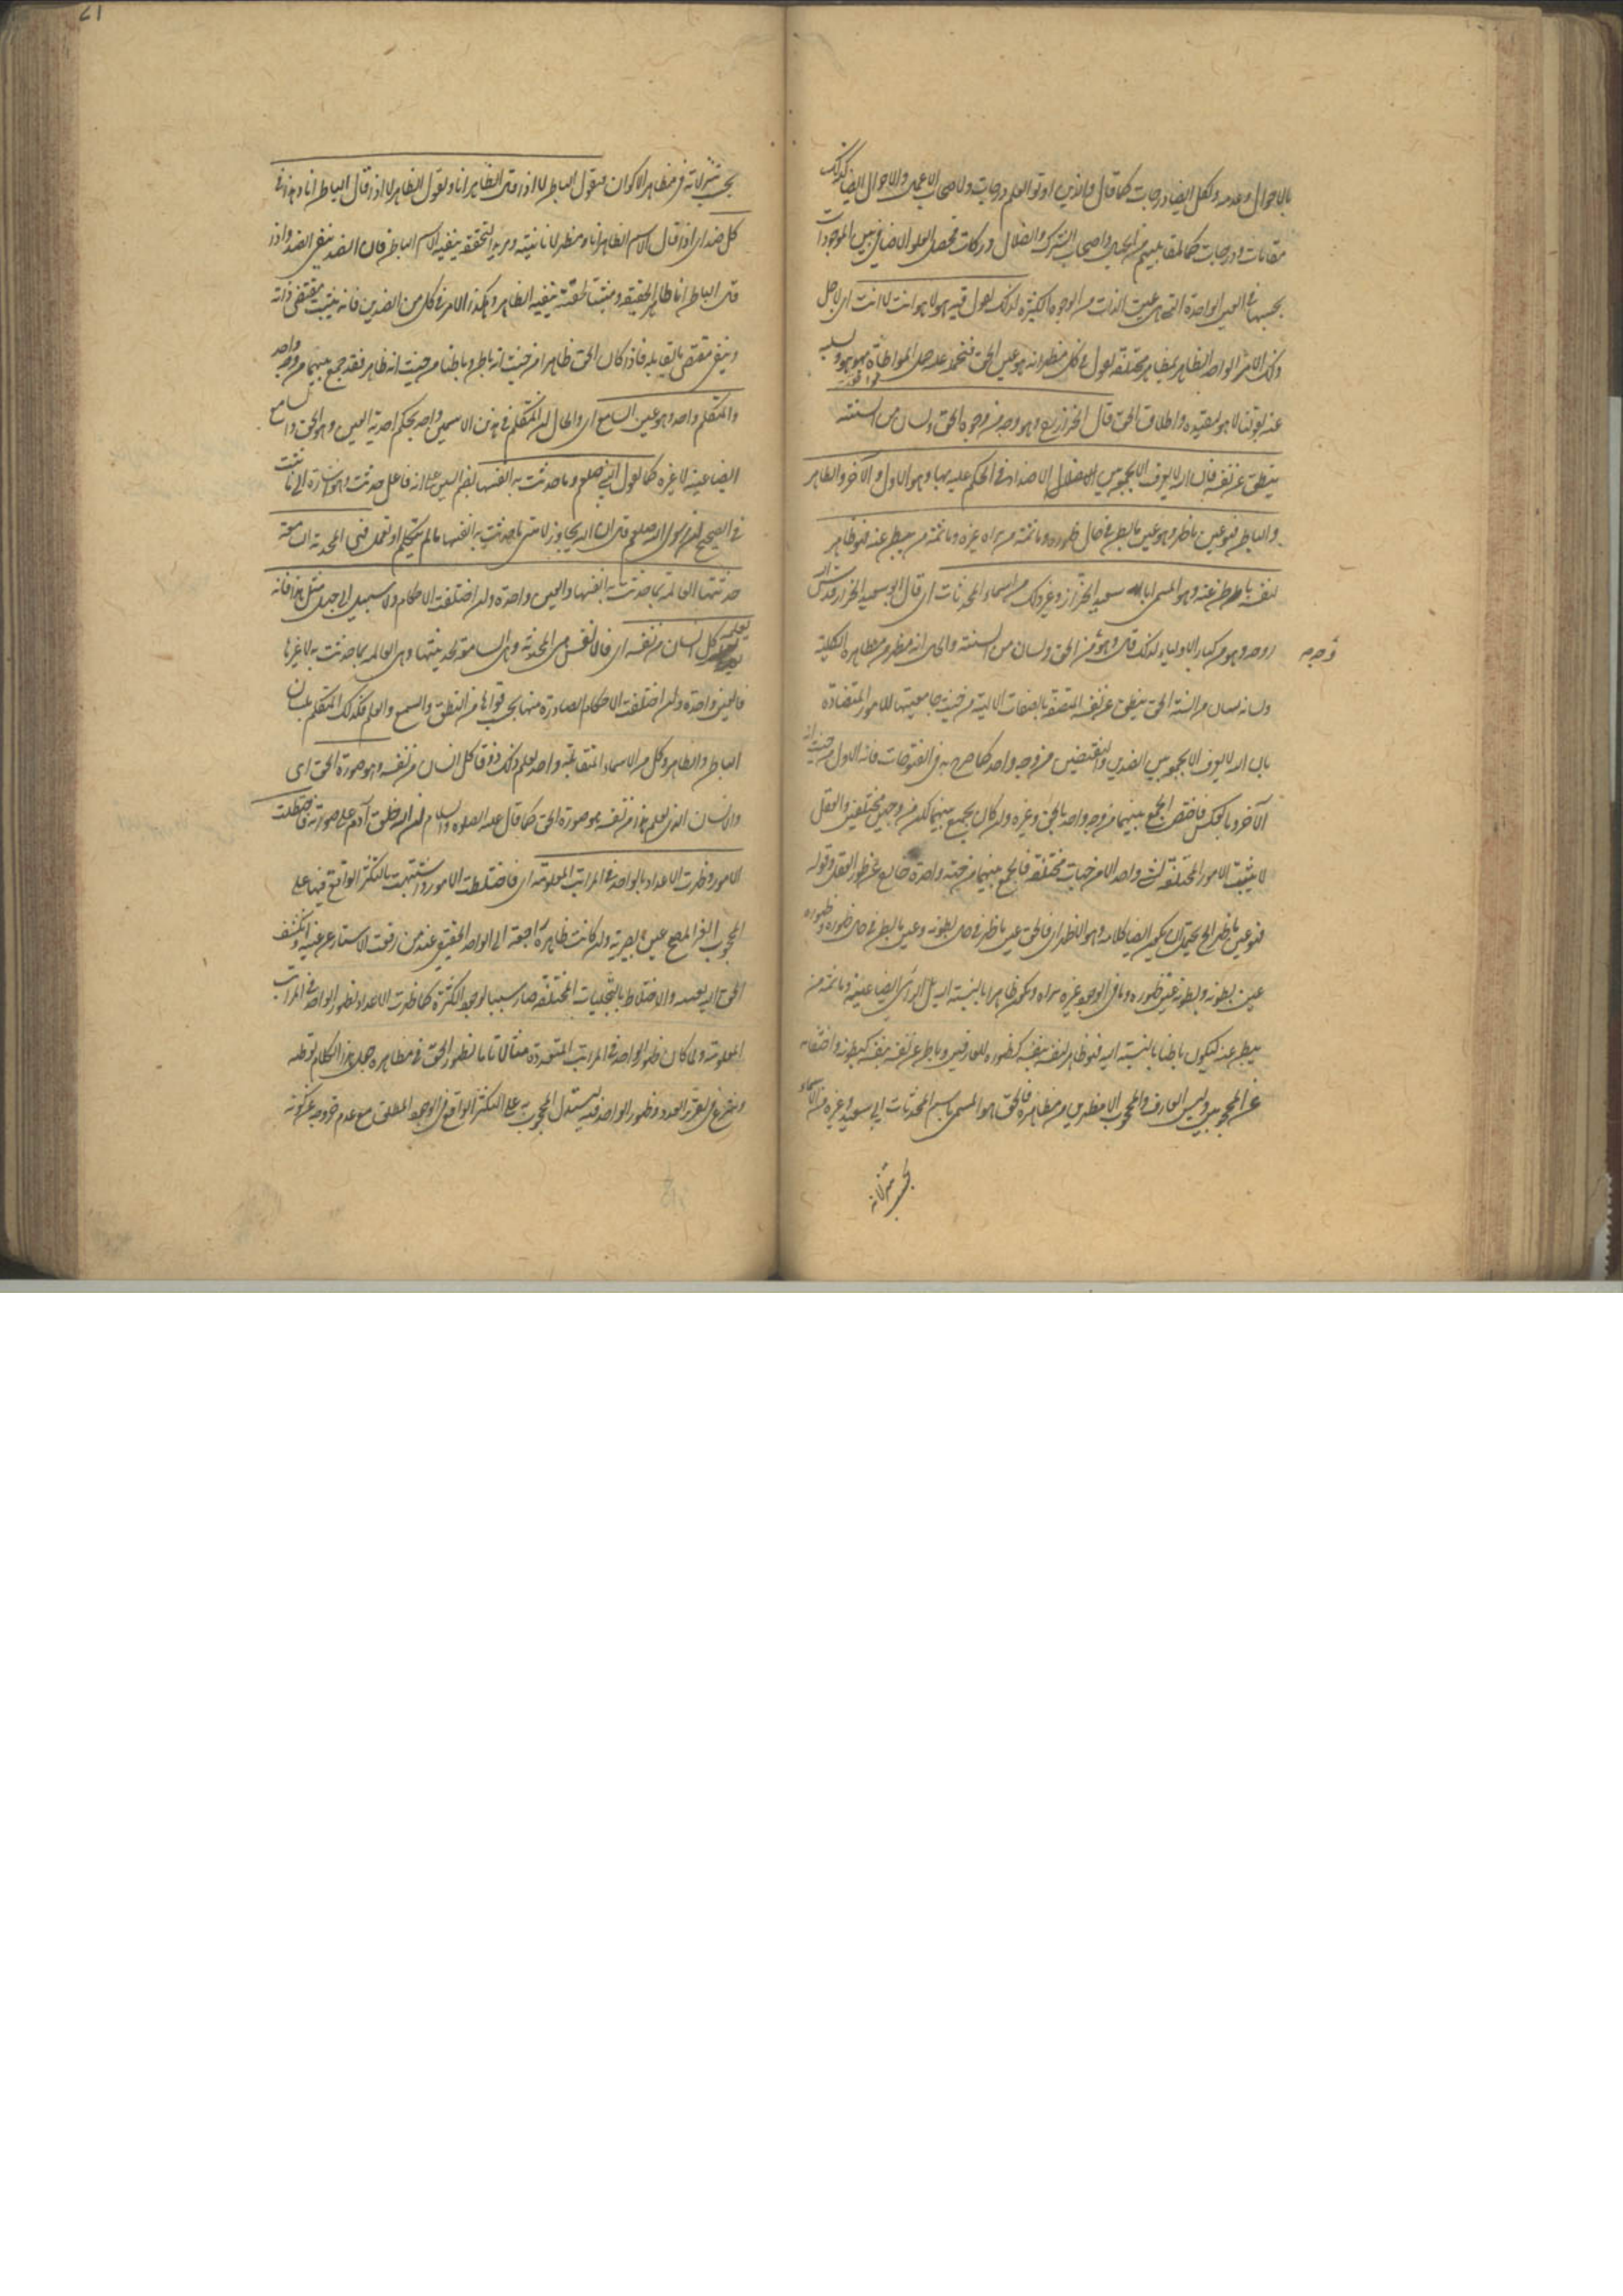 بالاحوال وعدمه ولكل ايضا درجات كما قال والذين اوتوا العلم درجات ولاصحاب الاعمال والاحوال ايضا كذلك
مقامات ودرجات كما لمقابليهم من الجهال واصحاب الشرك والضلال دركات فحصل العلو الاضافي بين الموجودات
بحسبها في العين الواحدة التي هي عين الذات من الوجوه الكثيرة لذلك نقول فيه هو لا هو انت لا انت اى لاجل
ذلك الامر الواحد الظاهر بمظاهر مختلفة نقول في كل مظهر انه هو عين الحق فنحمله عليه حمل المواطاة بهو هو ونسلبه
عنه بقولنا لا هو لتقيده واطلاق الحق قال الخراز رح وهو وجه من وجوه الحق ولسان من السنته
ينطق عن نفسه بان الله لا يعرف الا بجمعه بين الاضداد في الحكم عليه بها وهو الاول والآخر والظاهر
والباطن فهو عين ما ظهر وهو عين ما بطن في حال ظهوره وما ثمة من يراه غيره وما ثمة من يبطن عنه فهو ظاهر
لنفسه باطن عنه وهو المسمى ابا سعيد الخراز وغير ذلك من اسماء المحدثات اى قال ابو سعيد الخراز قدس الله
روحه وهو من كبار الاولياء لذلك قال وهو وجه من الحق ولسان من السنته والحال انه مظهر من مظاهره الكلية
ولسانه لسان من السنة الحق ينطق عن نفسه المتصفة بالصفات الالهية من حيث جامعيتها للامور المتضادة
بان الله لا يعرف الا بجمعه بين الضدين والنقيضين من وجه واحد كما صرح به في الفتوحات فانه الاول من حيث انه
الآخر وبالعكس فاختص الجمع بينهما من وجه واحد بالحق وغيره وان كان يجمع بينهما لكن من وجهين مختلفين والعقل
لا يثبت الامور المختلفة لشئ واحد الا من جهات مختلفة فالجمع بينهما من جهة واحدة خارج عن طور العقل وقوله
فهو عين ما ظهر الخ يحتمل ان يكون ايضا كلامه وهو الاظهر اى فالحق عين ما ظهر في حال بطونه وعين ما بطن في حال ظهوره وظهوره
عين بطونه وبطونه عين ظهوره وما في الوجود غيره ليراه ويكون ظاهرا بالنسبة اليه بل الرائي ايضا عينه وما ثمة من
يبطن عنه ليكون باطنا بالنسبة اليه فهو ظاهر لنفسه بنفسه كظهوره للعارفين وباطن عن نفسه بنفسه كبطونه واختفائه
عن المحجوبين وليس العارف والمحجوب الا مظهرين من مظاهره فالحق هو المسمى باسم المحدثات ابي سعيد وغيره من الاسماء
بحسب تنزلاته
وجه
بحسب تنزلاته في مظاهر الاكوان فيقول الباطن لا اذا قال الظاهر انا ويقول الظاهر لا اذا قال الباطن انا وهذا في
كل ضد اى اذا قال الاسم الظاهر انا ومظهرا لانانيته ومريدا لتحققه ينفيه الاسم الباطن فان الضد ينفي الضد واذا
قال الباطن انا مظهرا لحقيقته ومثبتا لحقيته ينفيه الظاهر وهكذا الامر في كل من الضدين فانه يثبت مقتضى ذاته
وينفي مقتضى ما يقابله فاذا كان الحق ظاهرا من حيث انه باطن وباطنا من حيث انه ظاهر فقد جمع بينهما من وجه واحد
والمتكلم واحد وهو عين السامع اى والحال ان المتكلم في هذين الاسمين واحد بحكم احدية العين وهو الحق والسامع
ايضا عينه لا غيره كما يقول النبي صلعم وما حدثت به انفسها بضم السين على انه فاعل حدثت وهو اشارة الى ما ثبت
في الصحيح ان رسول الله صلعم قال ان الله تجاوز لامتى ما حدثت به انفسها ما لم تتكلم او تعمل فهي المحدثة السامعة
حديثها العالمة بما حدثت به انفسها والعين واحدة وان اختلفت الاحكام ولا سبيل الى جهل مثل هذا فانه
يعلمه كل انسان من نفسه اى فالنفس هي المحدثة وهي السامعة لحديثها وهي العالمة بما حدثت به لا غيرها
فالعين واحدة وان اختلفت الاحكام الصادرة منها بحسب قواها من النطق والسمع والعلم فكذلك المتكلم بلسان
الباطن والظاهر وكل من الاسماء المتقابلة واحد يعلم ذلك ذوقا كل انسان من نفسه وهو صورة الحق اى
والانسان الذى يعلم هذا من نفسه هو صورة الحق كما قال عليه الصلوة والسلام ان الله خلق آدم على صورته فاختلطت
الامور وظهرت الاعداد بالواحد في المراتب المعلومة اى فاختلطت الامور واشتبهت بالتكثر الواقع فيها على
المحجوب الغير المفتح عين بصيرته وان كانت ظاهرة راجعة الى الواحد الحقيقي عند من رفعت الاستار عن عينه وانكشف
الحق اليه بعينه والاختلاط بالتجليات المختلفة صار سببا لوجود الكثرة كما ظهرت الاعداد بظهور الواحد في المراتب
المعلومة ولما كان ظهور الواحد في المراتب المتعددة مثالا تاما لظهور الحق في مظاهره جعل هذا الكلام توطئة
وشرع في تقرير العدد وظهور الواحد فيه ليستدل المحجوب به على التكثر الواقع في الوجود المطلق مع عدم خروجه عن كونه